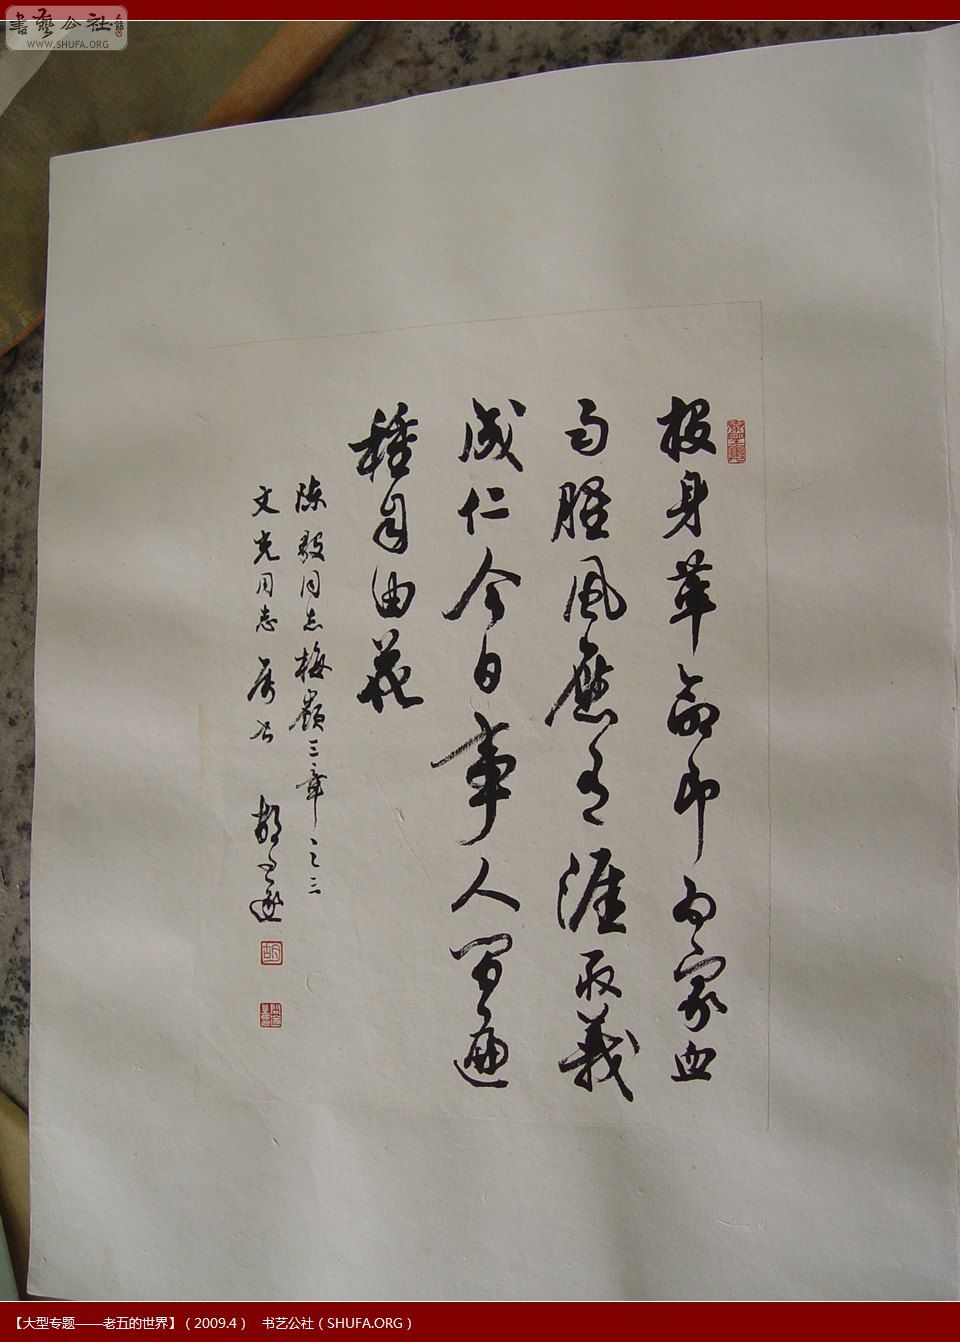 書藝公社
WWW.SHUFA.ORG
投身革命即為家血
雨腥風應有涯取義
成仁今日事人間遍
種自由花
陳毅同志梅嶺三章之三
文光同志屬書 胡問遂
【大型专题——老五的世界】（2009.4） 书艺公社（SHUFA.ORG）